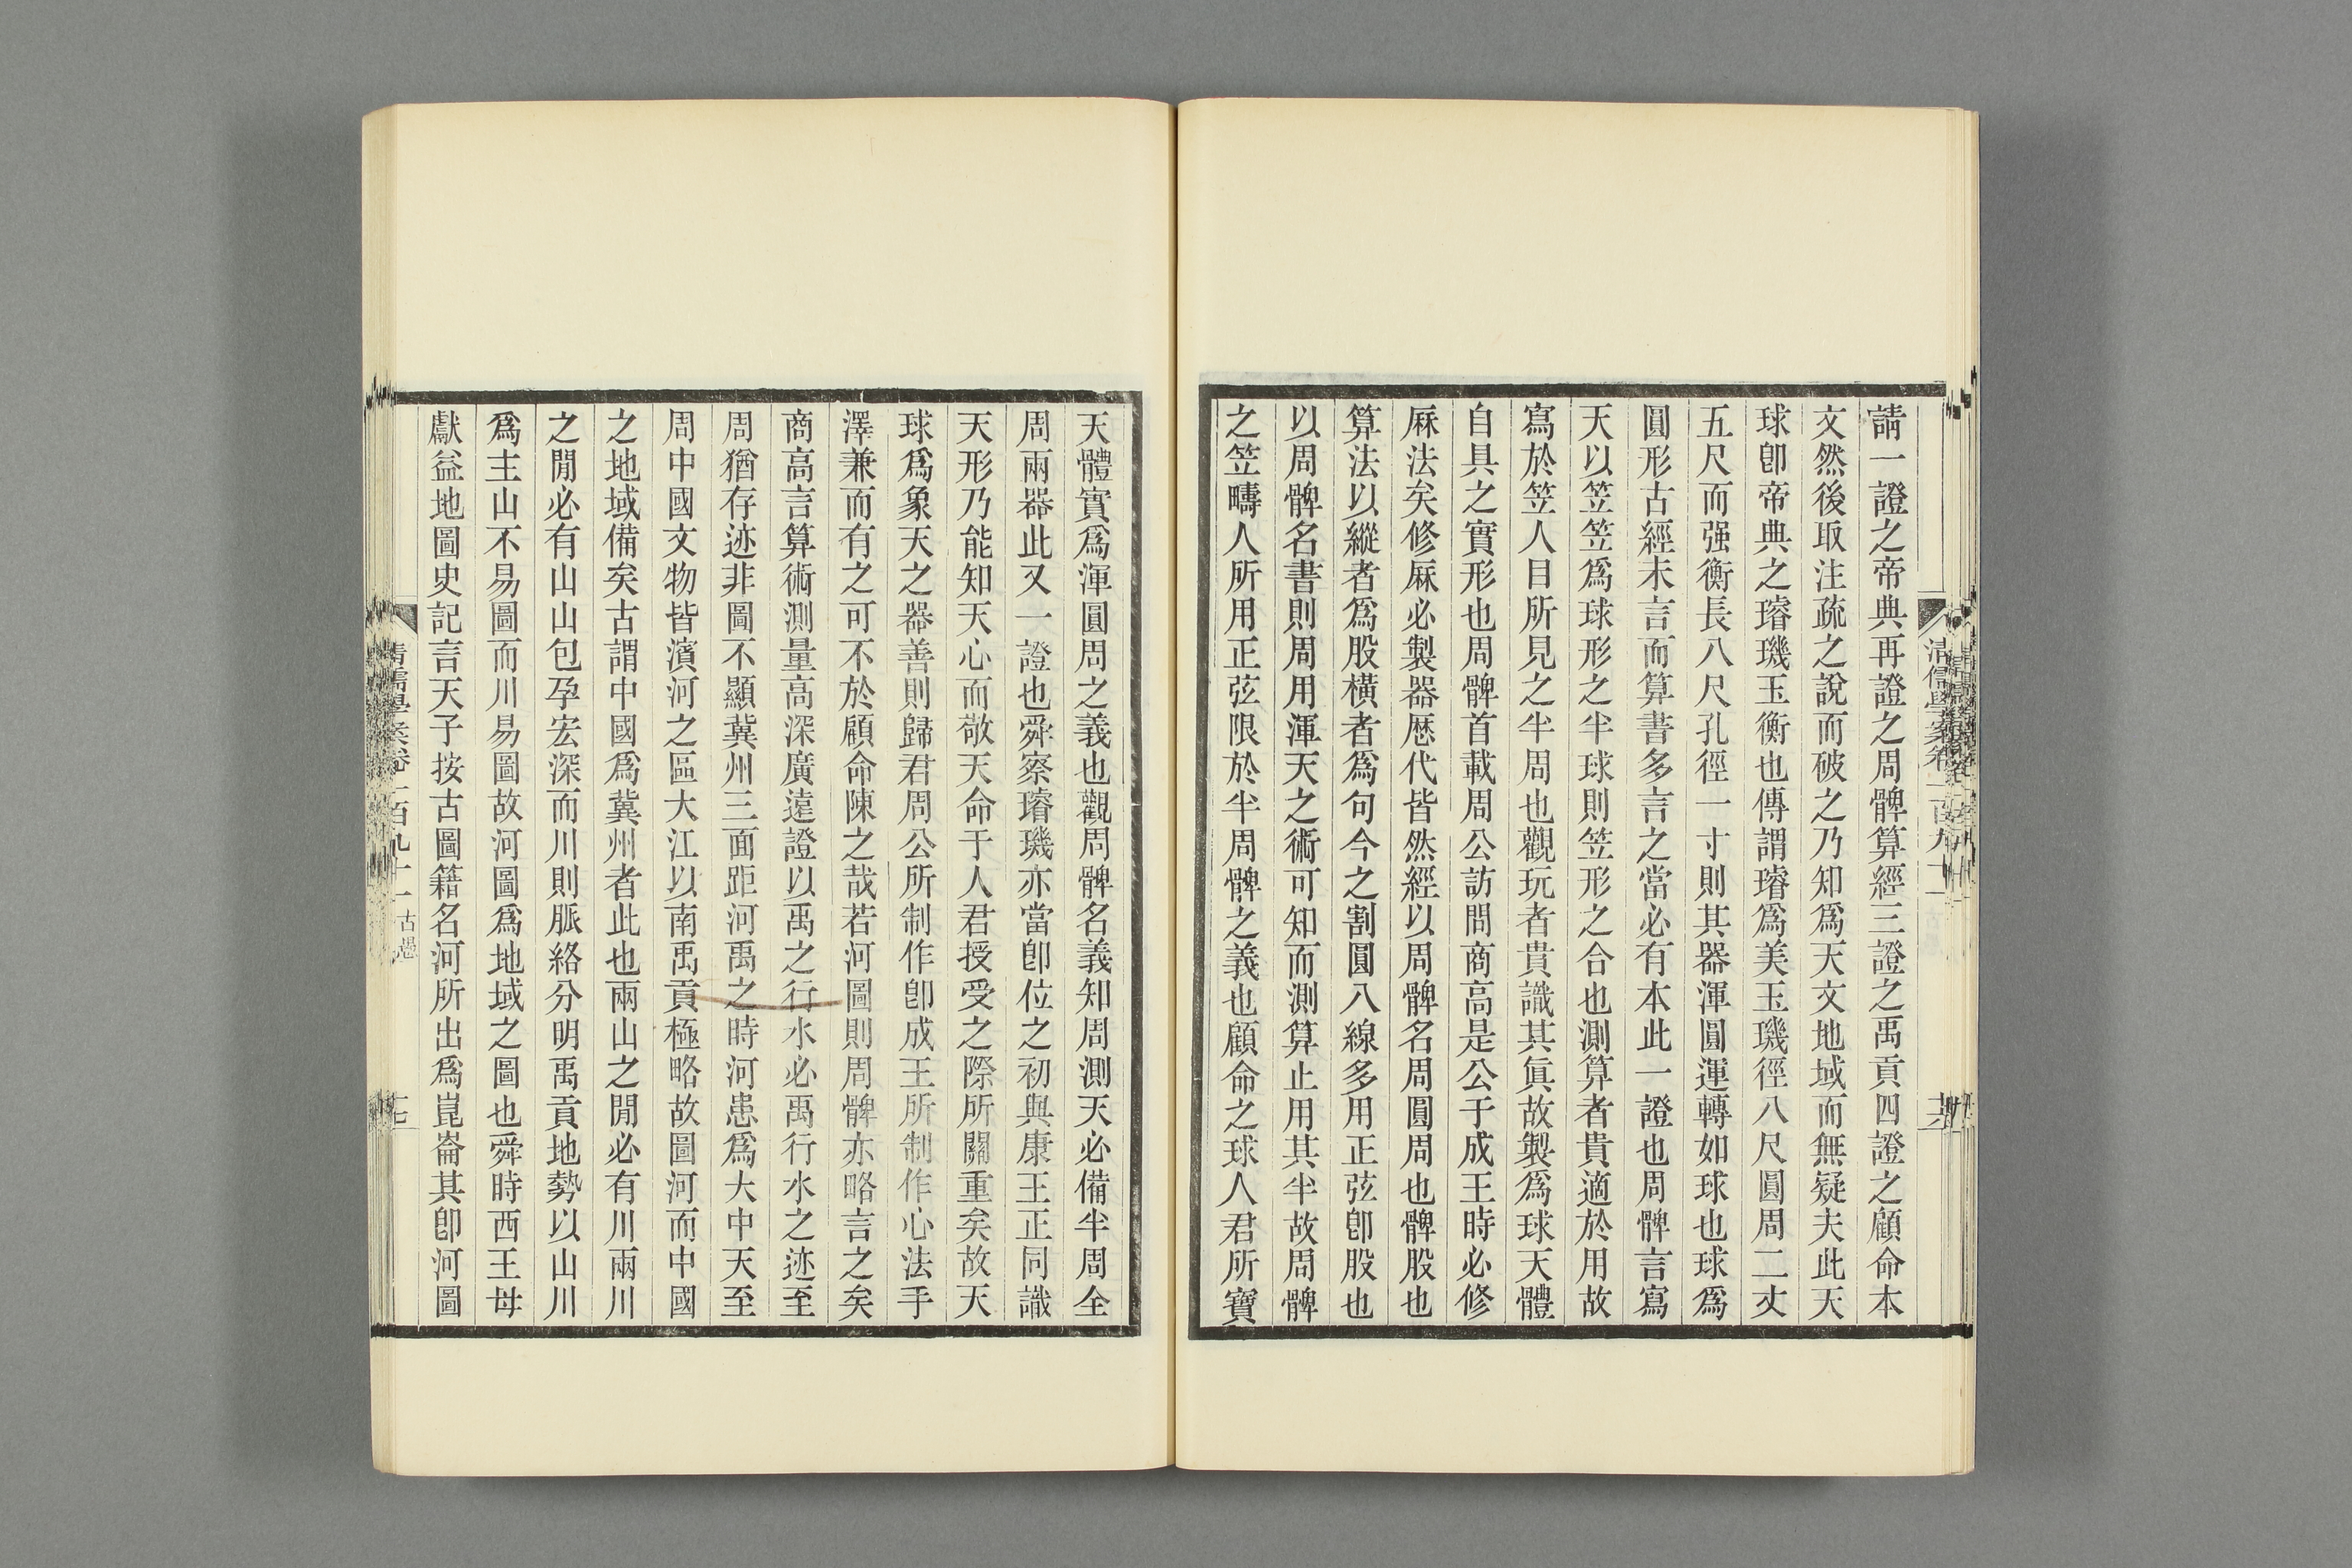 請一證之帝典再證之周髀算經三證之禹貢四證之顧命本
文然後取注疏之說而破之乃知爲天文地域而無疑夫此天
球卽帝典之璿璣玉衡也傳謂璿爲美玉璣徑八尺圓周二丈
五尺而强衡長八尺孔徑一寸則其器渾圓運轉如球也球爲
圓形古經未言而算書多言之當必有本此一證也周髀言寫
天以笠笠爲球形之半球則笠形之合也測算者貴適於用故
寫於笠人目所見之半周也觀玩者貴識其眞故製爲球天體
自具之實形也周髀首載周公訪問商高是公于成王時必修
厤法矣修厤必製器歴代皆然經以周髀名周圓周也髀股也
算法以縱者爲股橫者爲句今之割圓八線多用正弦卽股也
以周髀名書則周用渾天之術可知而測算止用其半故周髀
之笠疇人所用正弦限於半周髀之義也顧命之球人君所寶
天體實爲渾圓周之義也觀周髀名義知周測天必備半周全
周兩器此又一證也舜察璿璣亦當卽位之初與康王正同識
天形乃能知天心而敬天命于人君授受之際所關重矣故天
球爲象天之器善則歸君周公所制作卽成王所制作心法手
澤兼而有之可不於顧命陳之哉若河圖則周髀亦略言之矣
商高言算術測量高深廣遠證以禹之行水必禹行水之迹至
周猶存迹非圖不顯冀州三面距河禹之時河患爲大中天至
周中國文物皆濱河之區大江以南禹貢極略故圖河而中國
之地域備矣古謂中國爲冀州者此也兩山之閒必有川兩川
之閒必有山山包孕宏深而川則脈絡分明禹貢地勢以山川
爲主山不易圖而川易圖故河圖爲地域之圖也舜時西王母
獻益地圖史記言天子按古圖籍名河所出爲崑崙其卽河圖
清儒學案卷一百九十一 古愚